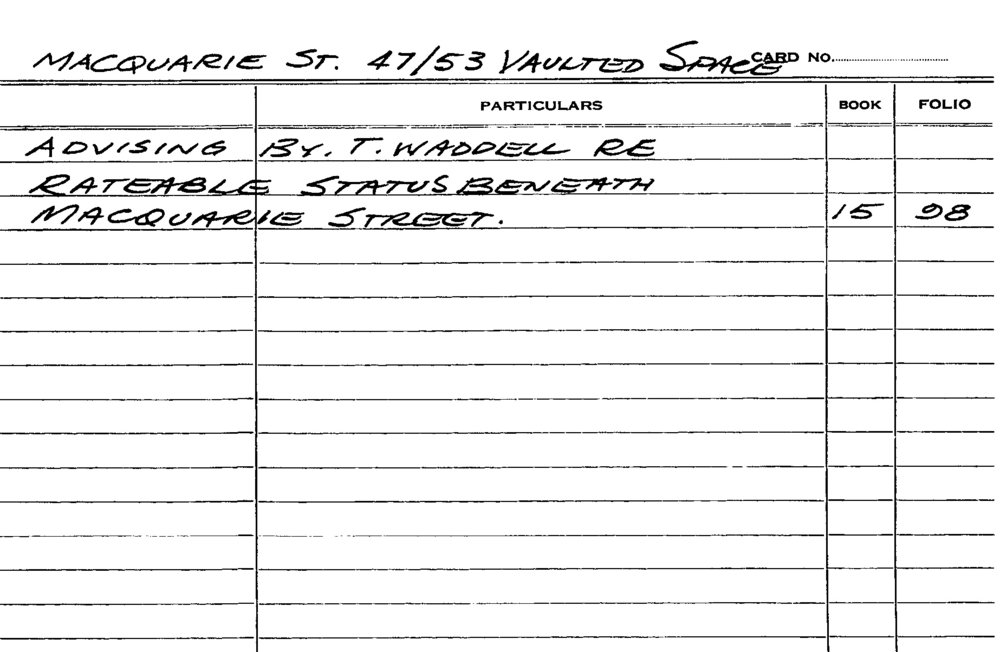 MACQUARIE ST. 47/53 VAULTED SPACE CARD NO.
PARTICULARS BOOK FOLIO
ADVISING BY. T. WADDELL RE
RATEABLE STATUS BENEATH
MACQUARIE STREET. 15 98